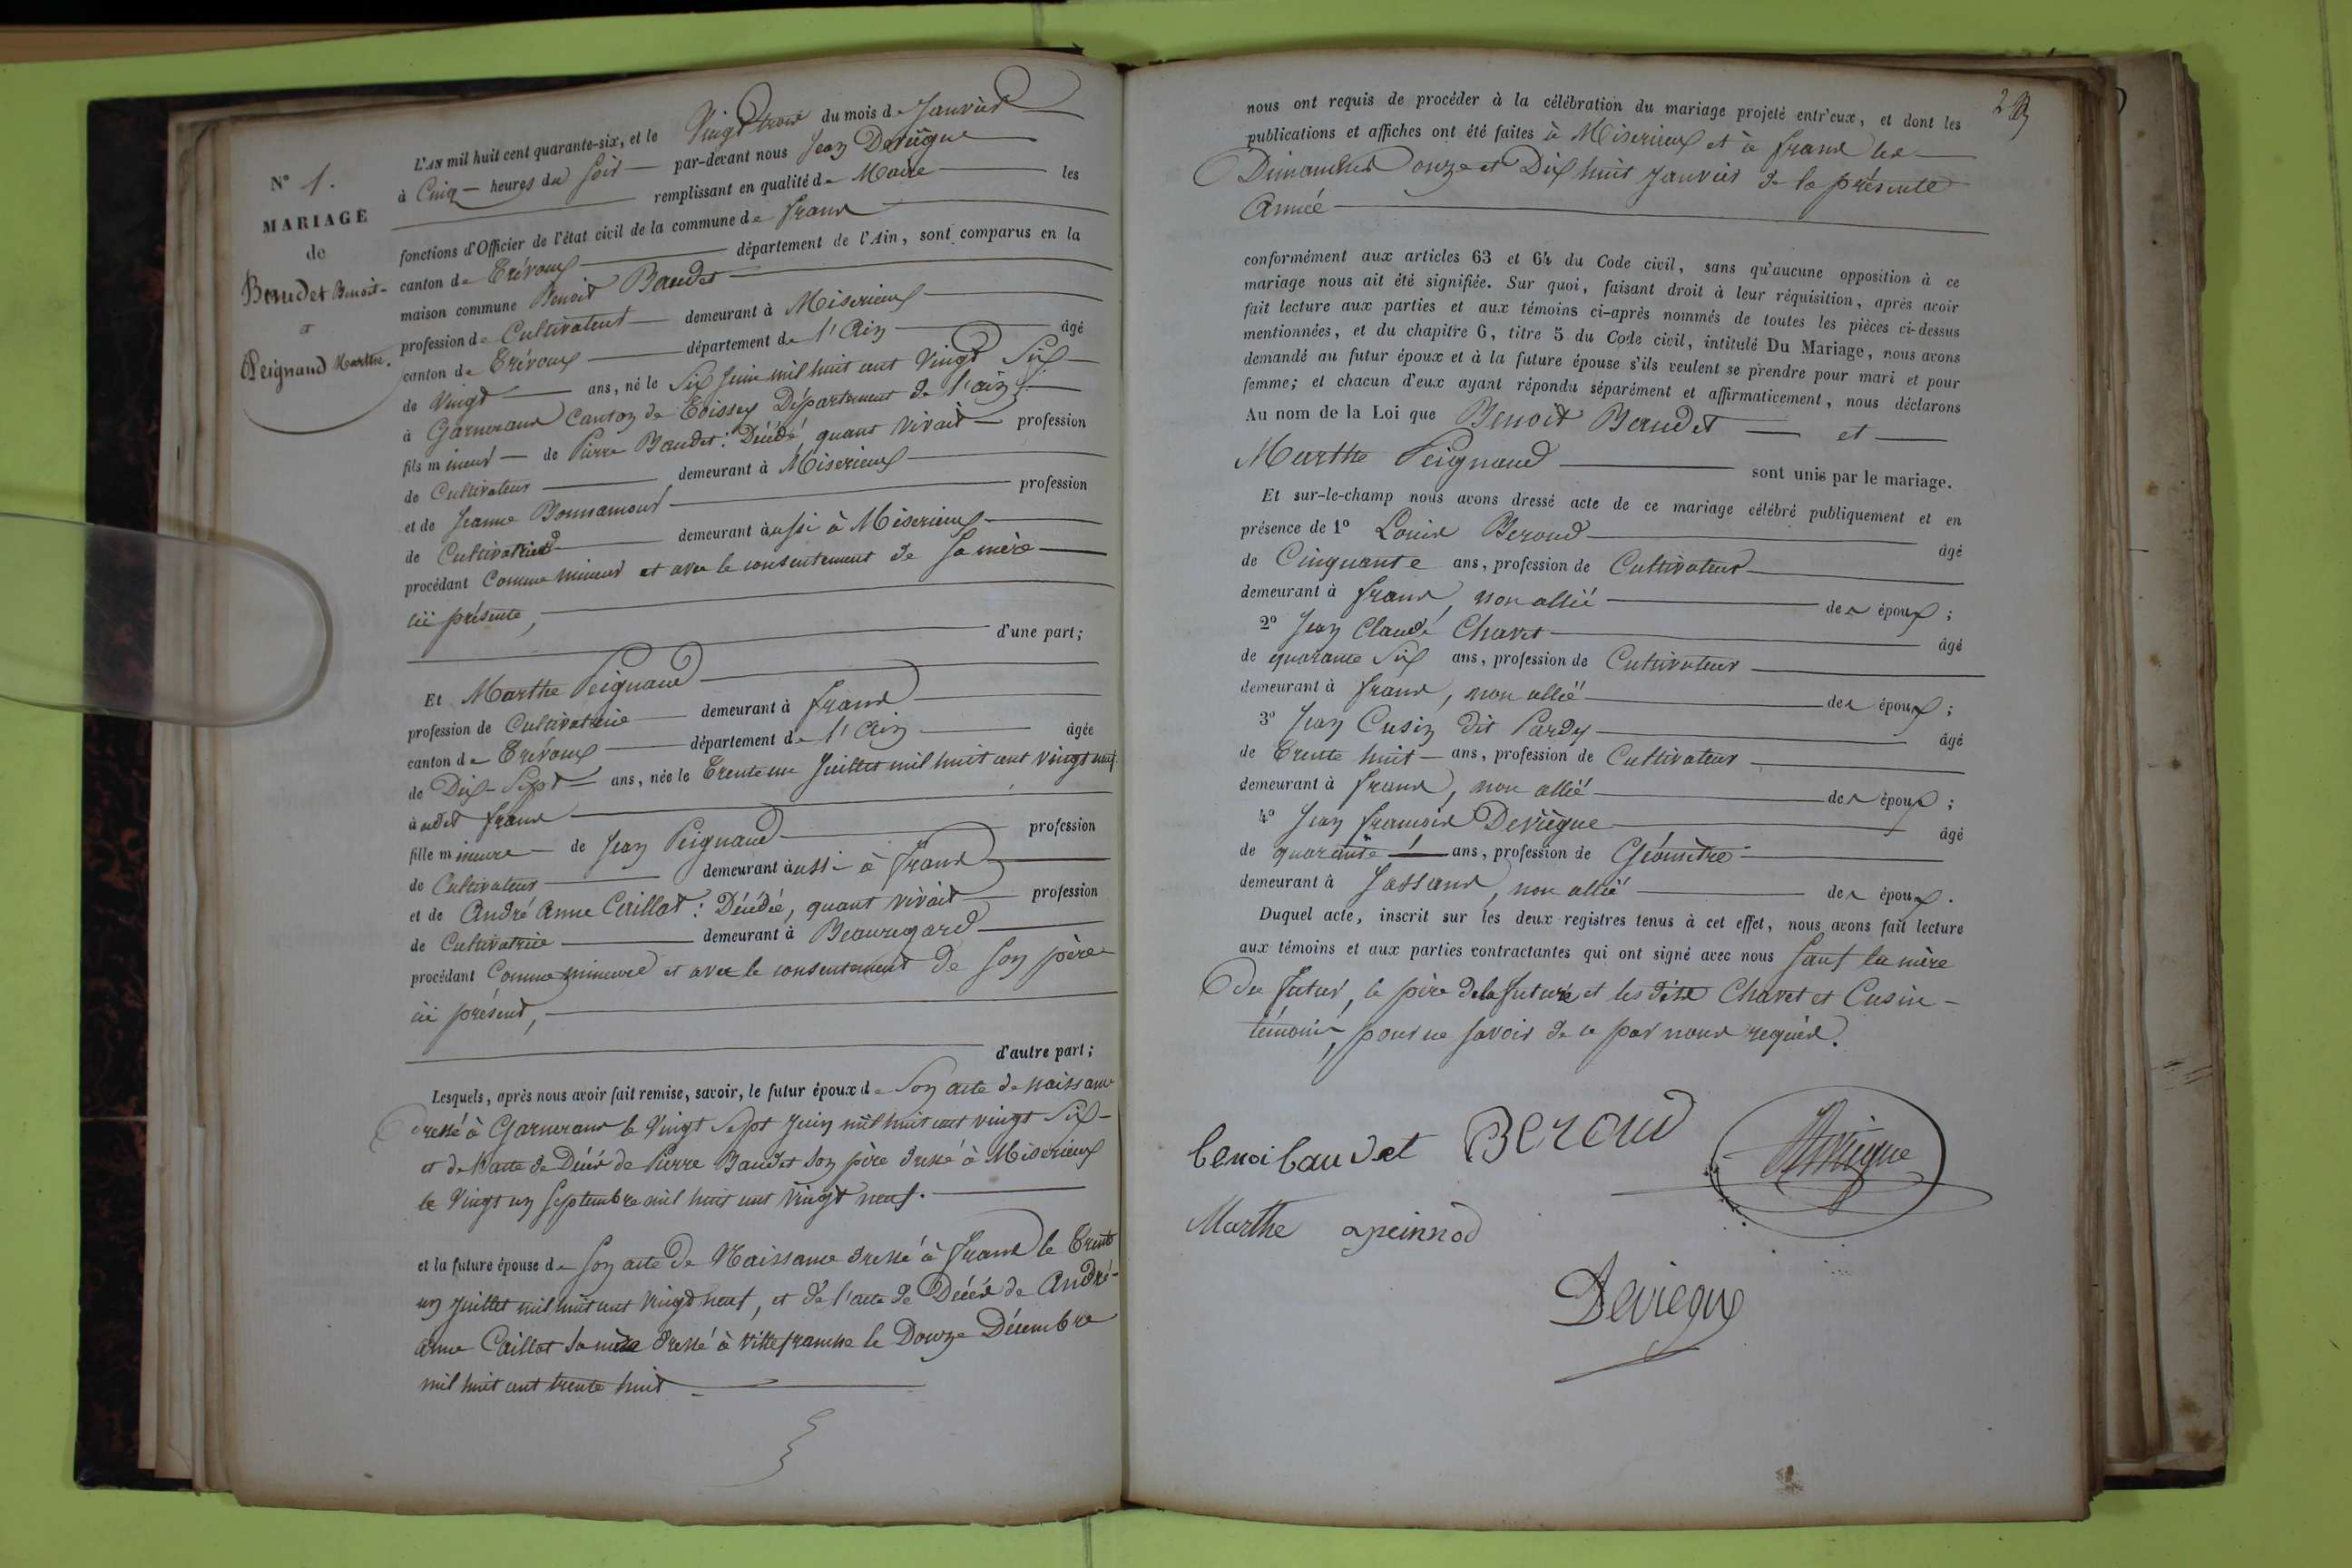 N° 1.
MARIAGE
de
Baudet Benoit -
et
Peignaud Marthe.
L'AN mil huit cent quarante-six, et le Vingt trois du mois de Janvier
à Cinq - heures du Soir - par-devant nous Jean Deviègue
remplissant en qualité de Maire les
fonctions d'Officier de l'état civil de la commune de frans
canton de Trévoux département de l'Ain, sont comparus en la
maison commune Benoit Baudet
profession de Cultivateur demeurant à Miserieux
canton de Trévoux département de l'Ain âgé
de Vingt ans, né le Six Juin mil huit cent Vingt Six
à Garnerans Canton de Thoissey Département de l'ain
fils mineur de Pierre Baudet : Décédé, quant vivait profession
de Cultivateur demeurant à Miserieux
et de Jeanne Bonnamour profession
de Cultivatrice demeurant aussi à Miserieux
procédant Comme mineur et avec le consentement de Sa mère
ici présente,
d'une part;
Et Marthe Peignaud
profession de Cultivatrice demeurant à frans
canton de Trévoux département de l'Ain âgée
de Dix-Sept ans, née le Trente un Juillet mil huit cent vingt neuf
à udit frans
fille mineure de Jean Peignaud profession
de Cultivateur demeurant aussi à frans
et de André Anne Caillat : Décédée, quant vivait profession
de Cultivatrice demeurant à Beauregard
procédant Comme mineure et avec le consentement de Son père
ici présent,
d'autre part;
Lesquels, après nous avoir fait remise, savoir, le futur époux de Son acte de naissance
dressé à Garnerans le Vingt Sept Juin mil huit cent vingt Six -
et de l'acte de Décès de Pierre Baudet Son père dressé à Miserieux
le Vingt un Septembre mil huit cent Vingt neuf.
et la future épouse de Son acte de Naissance dressé à frans le Trente
un Juillet mil huit cent Vingt neuf, et de l'acte de Décès de André-
Anne Caillat Sa mère dressé à Villefranche le Douze Décembre
mil huit cent trente huit
nous ont requis de procéder à la célébration du mariage projeté entr'eux, et dont les
publications et affiches ont été faites à Miserieux et à frans les
Dimanches onze et Dix huit Janvier de la présente
Année
conformément aux articles 63 et 64 du Code civil, sans qu'aucune opposition à ce
mariage nous ait été signifiée. Sur quoi, faisant droit à leur réquisition, après avoir
fait lecture aux parties et aux témoins ci-après nommés de toutes les pièces ci-dessus
mentionnées, et du chapitre 6, titre 5 du Code civil, intitulé Du Mariage, nous avons
demandé au futur époux et à la future épouse s'ils veulent se prendre pour mari et pour
femme; et chacun d'eux ayant répondu séparément et affirmativement, nous déclarons
Au nom de la Loi que Benoit Baudet et
Marthe Peignaud sont unis par le mariage.
Et sur-le-champ nous avons dressé acte de ce mariage célébré publiquement et en
présence de 1° Louis Beroud âgé
de Cinquante ans, profession de Cultivateur
demeurant à frans, non allié des époux;
2° Jean Claude Chavet âgé
de quarante Six ans, profession de Cultivateur
demeurant à frans, non allié des époux;
3° Jean Cusin dit Pardy âgé
de Trente huit ans, profession de Cultivateur
demeurant à frans, non allié des époux;
4° Jean francois Deviègue âgé
de quarante ans, profession de Géomètre
demeurant à Jassans, non allié des époux.
Duquel acte, inscrit sur les deux registres tenus à cet effet, nous avons fait lecture
aux témoins et aux parties contractantes qui ont signé avec nous Sauf la mère
du futur, le père de la future et les dits Chavet et Cusin -
témoins, pour ne savoir de ce par nous requis.
benoi baudet Beroud Deviegue
Marthe peinnod
Deviegue